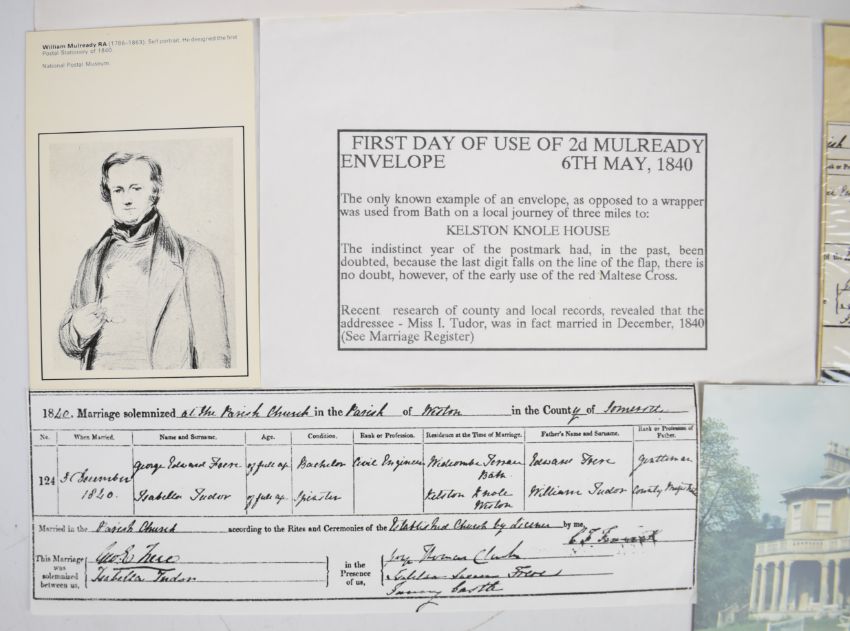 William Mulready RA (1786-1863). Self portrait. He designed the first
Postal Stationery of 1840.
National Postal Museum.
FIRST DAY OF USE OF 2d MULREADY
ENVELOPE 6TH MAY, 1840
The only known example of an envelope, as opposed to a wrapper
was used from Bath on a local journey of three miles to:
KELSTON KNOLE HOUSE
The indistinct year of the postmark had, in the past, been
doubted, because the last digit falls on the line of the flap, there is
no doubt, however, of the early use of the red Maltese Cross.
Recent research of county and local records, revealed that the
addressee - Miss I. Tudor, was in fact married in December, 1840
(See Marriage Register)
1840. Marriage solemnized at the Parish Church in the Parish of Weston in the County of Somerset
No. When Married. Name and Surname. Age. Condition. Rank or Profession. Residence at the Time of Marriage. Father's Name and Surname. Rank or Profession of Father.
124 December 1840. George Edward Frere of full age Bachelor Civil Engineer Widcombe Terrace Bath Edward Frere Gentleman
Isabella Tudor of full age Spinster Kelston Knole Weston William Tudor County
Married in the Parish Church according to the Rites and Ceremonies of the Established Church by Licence by me,
This Marriage was solemnized between us, Geo E Frere
Isabella Tudor
in the Presence of us, Thomas Clark
Frere
Fanny Castle